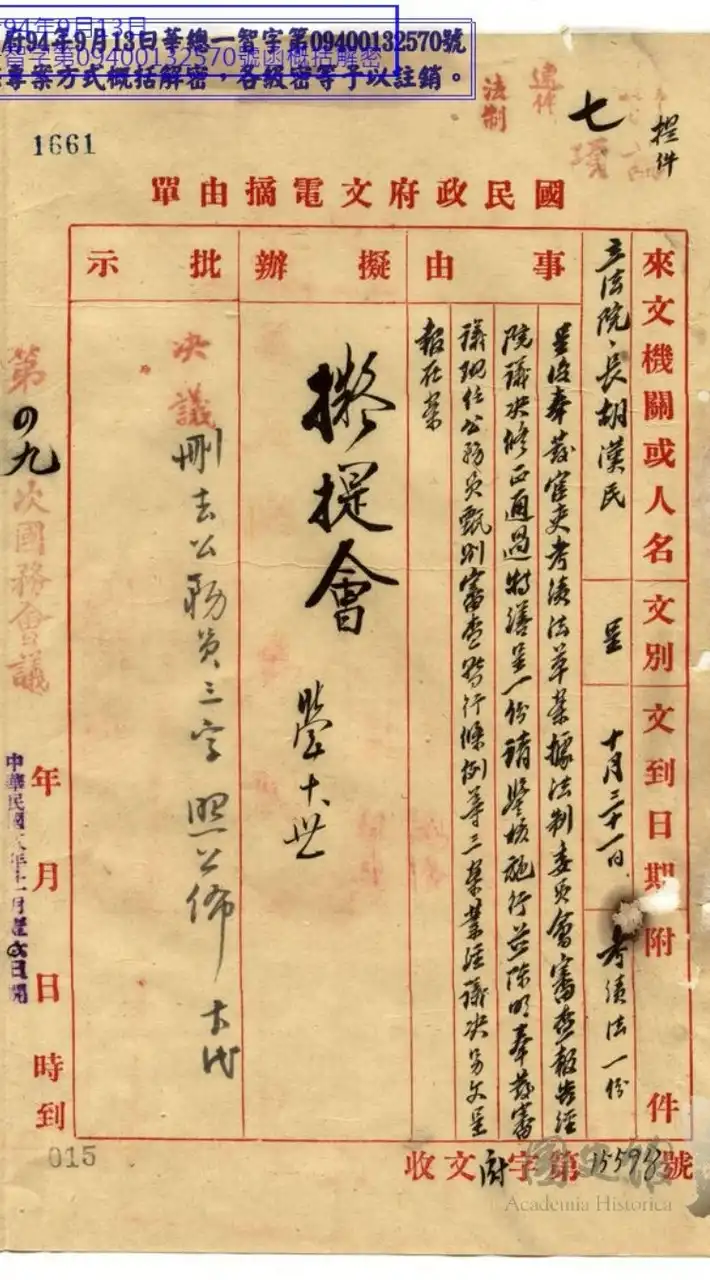 94年9月13日
府94年9月13日華總一智字第09400132570號
智字第09400132570號函概括解密
專案方式概括解密，各級密等予以註銷。
1661
提件
七項
法制
國民政府文電摘由單
來文機關或人名
立法院、長胡漢民
文別
呈
文到日期
十月三十一日
附件
考績法一份
事由
呈復奉發官吏考績法草案據法制委員會審查報告經
院議決修正通過特繕呈一份請鑒核施行並陳明奉發審
議現任公務員甄別審查暫行條例等三案業經議決另文呈
報在案
擬辦
擬提會
批示
決議
刪去公務員三字照公佈
第四九次國務會議
年月日時到
中華民國
015
收文府字第15598號
國史館
Academia Historica